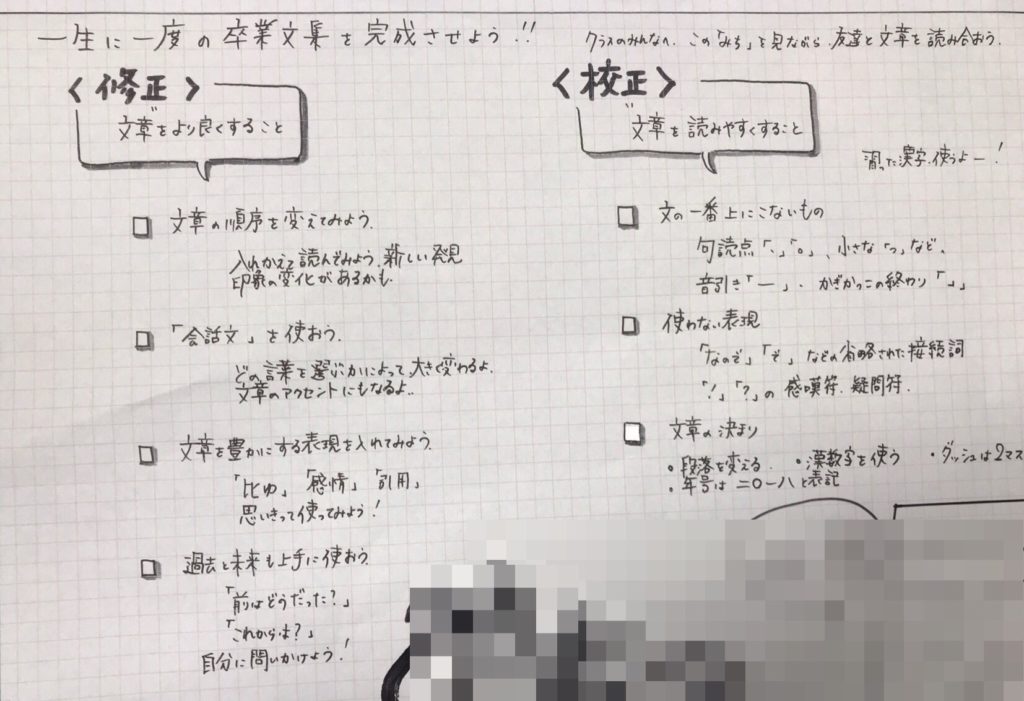 一生に一度の卒業文集を完成させよう!!
クラスのみんなへ、この「みち」を見ながら、友達と文章を読み合おう。
〈修正〉
"文章"をより良くすること
□ 文章の順序を変えてみよう。
入れかえて読んでみよう。新しい発見
印象の変化があるかも。
□ 「会話文」を使おう。
どの言葉を選ぶかによって、大きく変わるよ。
文章のアクセントにもなるよ..
□ 文章を豊かにする表現を入れてみよう。
「比ゆ」「感情」「引用」
思いきって使ってみよう!
□ 過去と未来も上手に使おう。
「前はどうだった?」
「これからは?」
自分に問いかけよう!
〈校正〉
"文章"を読みやすくすること
習った漢字、使うよー!
□ 文の一番上にこないもの
句読点「、」「。」、小さな「っ」など、
音引き「ー」、かぎかっこの終わり「」」
□ 使わない表現
「なので」「で」などの省略された接続詞
「!」「?」の感嘆符、疑問符.
□ 文章の決まり
・段落を変える ・漢数字を使う ・ダッシュは2マス
・年号は二〇一八と表記